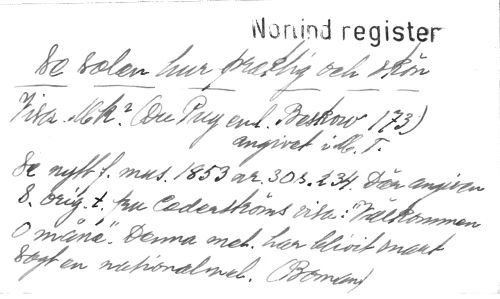 Nonind register
Se solen hur präktig och skön
Visa. Mk? (Du Puy enl. Beskow 173)
angivet i M. T.
Se nytt f. mus. 1853 nr. 30 s. 234. Där angiven
s. orig. t. fru Cederströms visa: "Välkommen
O måna". Denna mel. har blivit snart
sagt en nationalmel. (Boman)